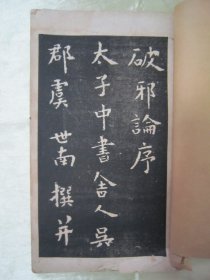 破邪論序
太子中書舍人吳
郡虞世南撰并